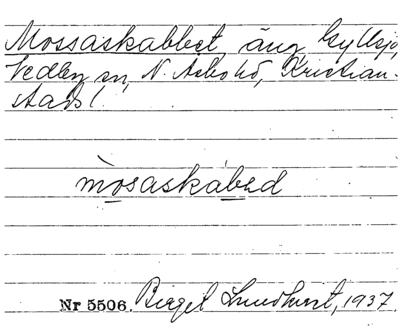 Mossaskabbet, äng, Gyllsjö,
Vedby sn, N. Åsbo hd, Kristian-
stads l.
mòsaskábəd
Nr 5506. Birger Lundhurst, 1937.